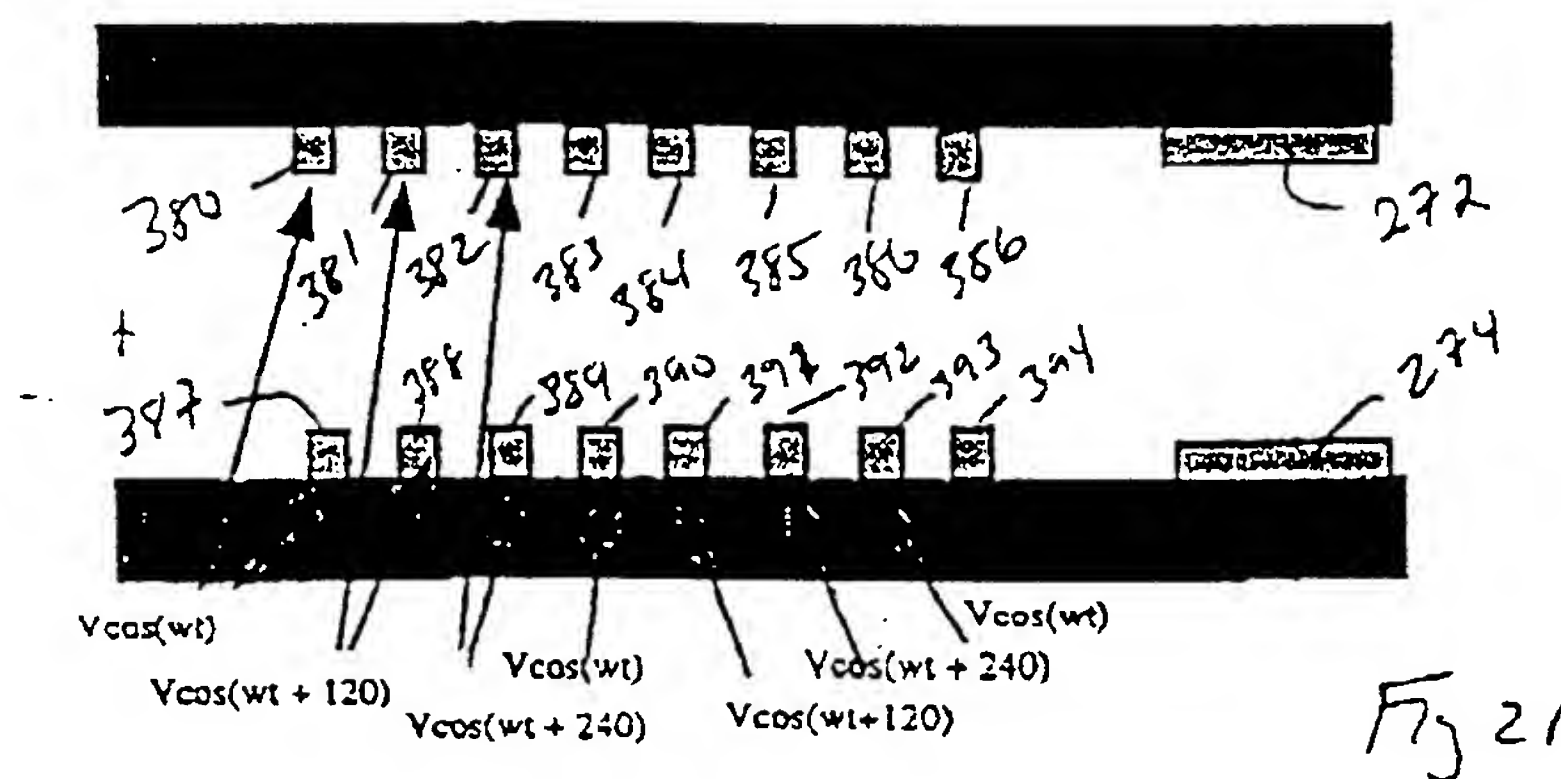 380
381
382
383
384
385
386
386
272
387
388
389
390
391
392
393
394
274
Vcos(wt)
Vcos(wt + 120)
Vcos(wt + 240)
Vcos(wt)
Vcos(wt+120)
Vcos(wt + 240)
Vcos(wt)
Fig 21